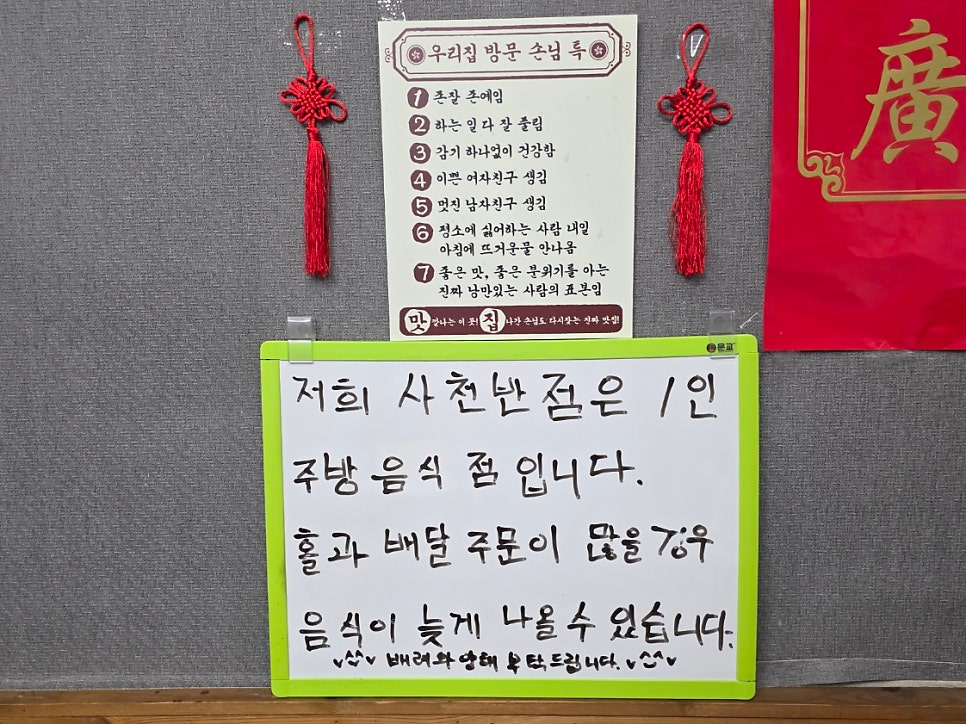 우리집 방문 손님 특
1 존잘 존예임
2 하는 일 다 잘 풀림
3 감기 하나없이 건강함
4 이쁜 여자친구 생김
5 멋진 남자친구 생김
6 평소에 싫어하는 사람 내일
아침에 뜨거운물 안나옴
7 좋은 맛, 좋은 분위기를 아는
진짜 낭만있는 사람의 표본임
맛 잘나는 이 곳! 집 나간 손님도 다시찾는 진짜 맛집!
廣
문교
저희 사천반점은 1인
주방 음식 점 입니다.
홀과 배달 주문이 많을 경우
음식이 늦게 나올 수 있습니다.
배려와 양해 부탁드립니다.